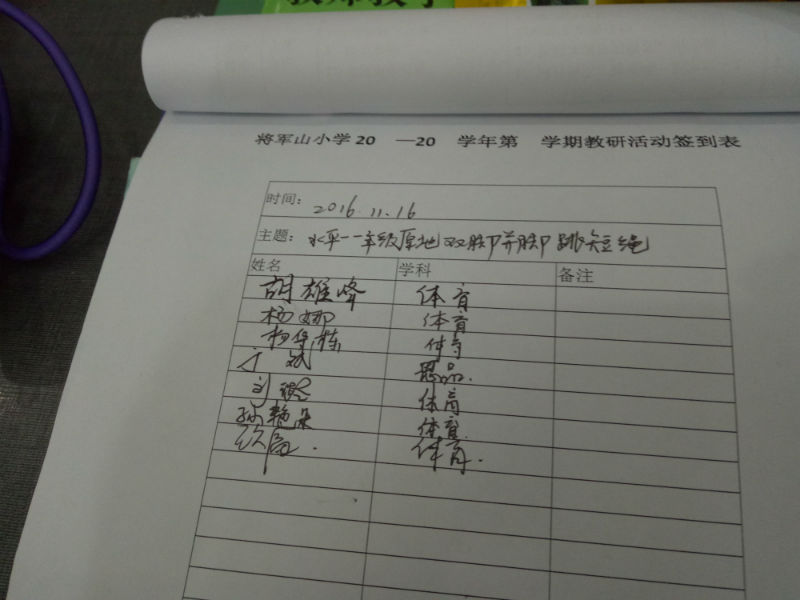 将军山小学20 —20 学年第 学期教研活动签到表
时间: 2016.11.16
主题: 水平一一年级原地双脚并脚跳短绳
姓名 学科 备注
胡雄峰 体育
杨娜 体育
杨华栋 体育
丁斌 思品.
刘 体育
孙艳 体育
体育.